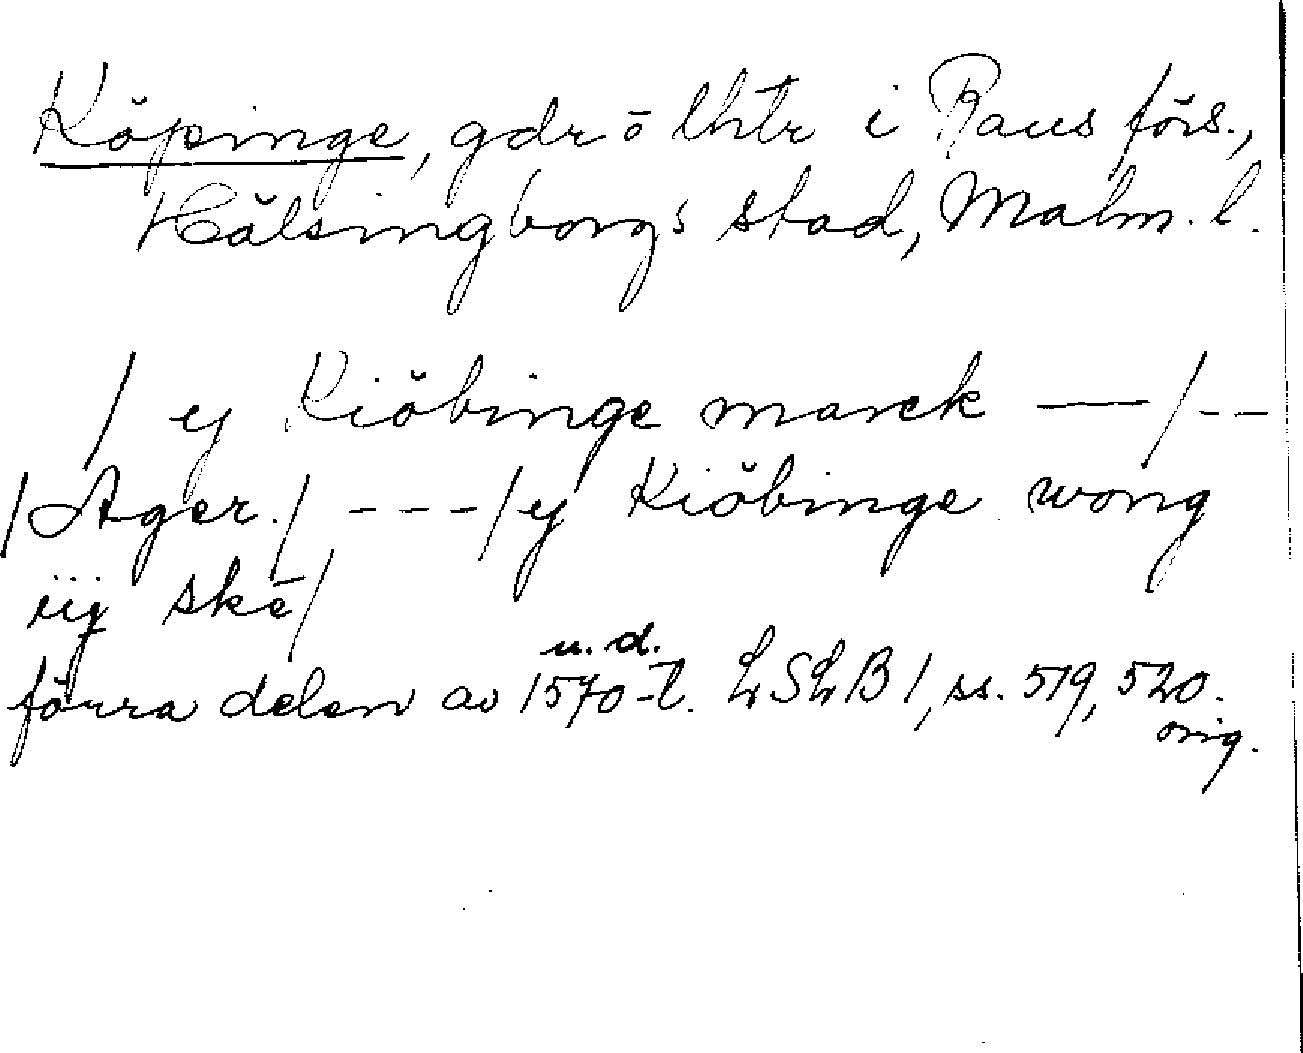 Köpinge, gdr o lhtr i Raus förs.,
Hälsingborgs stad, Malm. l.
/ ej Kiöbinge marck —/--
/Ager./ ---/ej Kiöbinge wong
iij ske/
u. d.
förra delen av 1570-t. LSLB 1, ss. 519, 520.
orig.